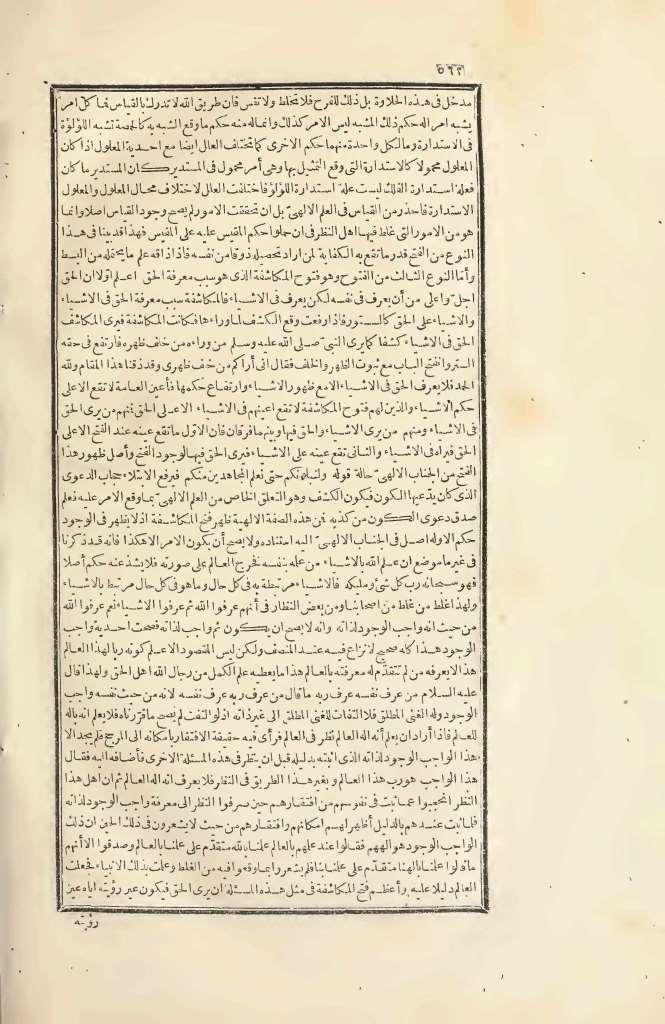 ٥٦٢
مدخل فى هذه الحلاوة بل ذلك للفرح فلا تخلط ولا تقس فان طريق الله لا تدرك بالقياس فما كل امر
يشبه امر اله حكم ذلك المشبه ليس الامر كذلك وانما له منه حكم ما وقع الشبه به كالحصة تشبه اللؤلؤة
فى الاستدارة وما لكل واحدة منهما حكم الاخرى كما تختلف العلل ايضا مع احدية المعلول اذا كان
المعلول محمولا كالاستدارة التى وقع التمثيل بها وهى أمر محمول فى المستدير كان المستدير ما كان
فعلة استدارة الفلك ليست علة استدارة اللؤلؤ فاختلفت العلل لاختلاف محال المعلول والمعلول
الاستدارة فاحذر من القياس فى العلم الالهىّ بل ان تحققت الامور لم يصح وجود القياس اصلا وانما
هو من الامور التى غلط فيها اهل النظر فى ان حملوا حكم المقيس عليه على المقيس فهذا قد بينا فى هذا
النوع من الفتح قدر ما تقع به الكفاية لمن اراد تحصيله ذوقا من نفسه فاذا ذاقه علم ما يحتمله من البسط
وأما النوع الثالث من الفتوح وهو فتوح المكاشفة الذى هو سبب معرفة الحق اعلم اولا ان الحق
اجلّ واعلى من أن يعرف فى نفسه لكن يعرف فى الاشياء فالمكاشفة سبب معرفة الحق فى الاشياء
والاشياء على الحق كالستور فاذا رفعت وقع الكشف لما وراءها فكانت المكاشفة فيرى المكاشف
الحق فى الاشياء كشفا كما يرى النبىّ صلى الله عليه وسلم من وراءه من خلف ظهره فارتفع فى حقه
الستر وانفتح الباب مع ثبوت الظهر والخلف فقال انى أراكم من خلف ظهرى وقد ذقنا هذا المقام ولله
الحمد فلا يعرف الحق فى الاشياء الا مع ظهور الاشياء وارتفاع حكمها فأعين العامة لا تقع الا على
حكم الاشياء والذين لهم فتوح المكاشفة لا تقع اعينهم فى الاشياء الا على الحق فمنهم من يرى الحق
فى الاشياء ومنهم من يرى الاشياء والحق فيها وبينهما فرقان فان الاوّل ما تقع عينه عند الفتح الا على
الحق فيراه فى الاشياء والثانى تقع عينه على الاشياء فيرى الحق فيها لوجود الفتح وأصل ظهور هذا
الفتح من الجناب الالهىّ حالة قوله ولنبلونكم حتى نعلم المجاهدين منكم فيرفع الابتلاء حجاب الدعوى
الذى كان يدّعيها الكون فيكون الكشف وهو التعلق الخاص من العلم الالهىّ بما وقع الامر عليه فعلم
صدق دعوى الكون من كذبه فمن هذه الصفة الالهية ظهر فتح المكاشفة اذ لا يظهر فى الوجود
حكم الا وله اصل فى الجناب الالهىّ اليه استناده ولا يصح أن يكون الامر الا هكذا فانه قد ذكرنا
فى غير ما موضع ان علم الله بالاشياء من علمه بنفسه فخرج العالم على صورته فلا يشذ عنه حكم أصلا
فهو سبحانه رب كل شئ ومليكه فالاشياء مرتبطة به فى كل حال وما هو فى كل حال مرتبط بالاشياء
ولهذا غلط من غلط من اصحابنا ومن بعض النظار فى أنهم عرفوا الله ثم عرفوا الاشياء نعم عرفوا الله
من حيث انه واجب الوجود لذاته وانه لا يصح ان يكون ثم واجب لذاته فصحت احدية واجب
الوجود هذا كله صحيح لا نزاع فيه عند المنصف ولكن ليس المقصود الا علم كونه ربا لهذا العالم
هذا لا يعرفه من لم تتقدّم له معرفته بالعالم هذا ما يعطيه علم الكمل من رجال الله اهل الحق ولهذا قال
عليه السلام من عرف نفسه عرف ربه ما قال من عرف ربه عرف نفسه لانه من حيث نفسه واجب
الوجود وله الغنى المطلق فلا التفات للغنى المطلق الى غير ذاته اذ لو التفت لم يصح ما قرّرناه فلا يعلم انه اله
للعالم فاذا أراد ان يعلم أنه اله العالم نظر فى العالم فرأى فيه حقيقة الافتقار بامكانه الى المرجح فلم يجد الا
هذا الواجب الوجود لذاته الذى أثبته بدليله قبل ان ينظر فى هذه المسئلة الاخرى فأضافه اليه فقال
هذا الواجب هو رب هذا العالم وبغير هذا الطريق فى النظر فلا يعرف انه اله العالم ثم ان اهل هذا
النظر انحجبوا عما ثبت فى نفوسهم من افتقارهم حين صرفوا النظر الى معرفة واجب الوجود لذاته
فلما ثبت عندهم بالدليل أظهر لهم امكانهم وافتقارهم من حيث لا يشعرون فى ذلك الحين ان ذلك
الواجب الوجود هو الههم فقالوا عند علمهم بالعالم علمنا بالله متقدّم على علمنا بالعالم وصدقوا الا أنهم
ما قالوا علمنا بالهنا متقدّم على علمنا بنا فلم يشعروا بما وقعوا فيه من الغلط وعلمت بذلك الانبياء فجعلت
العالم دليلا عليه وأعظم فتح المكاشفة فى مثل هذه المسئلة ان يرى الحق فيكون عين رؤيته اياه عين
رؤيته